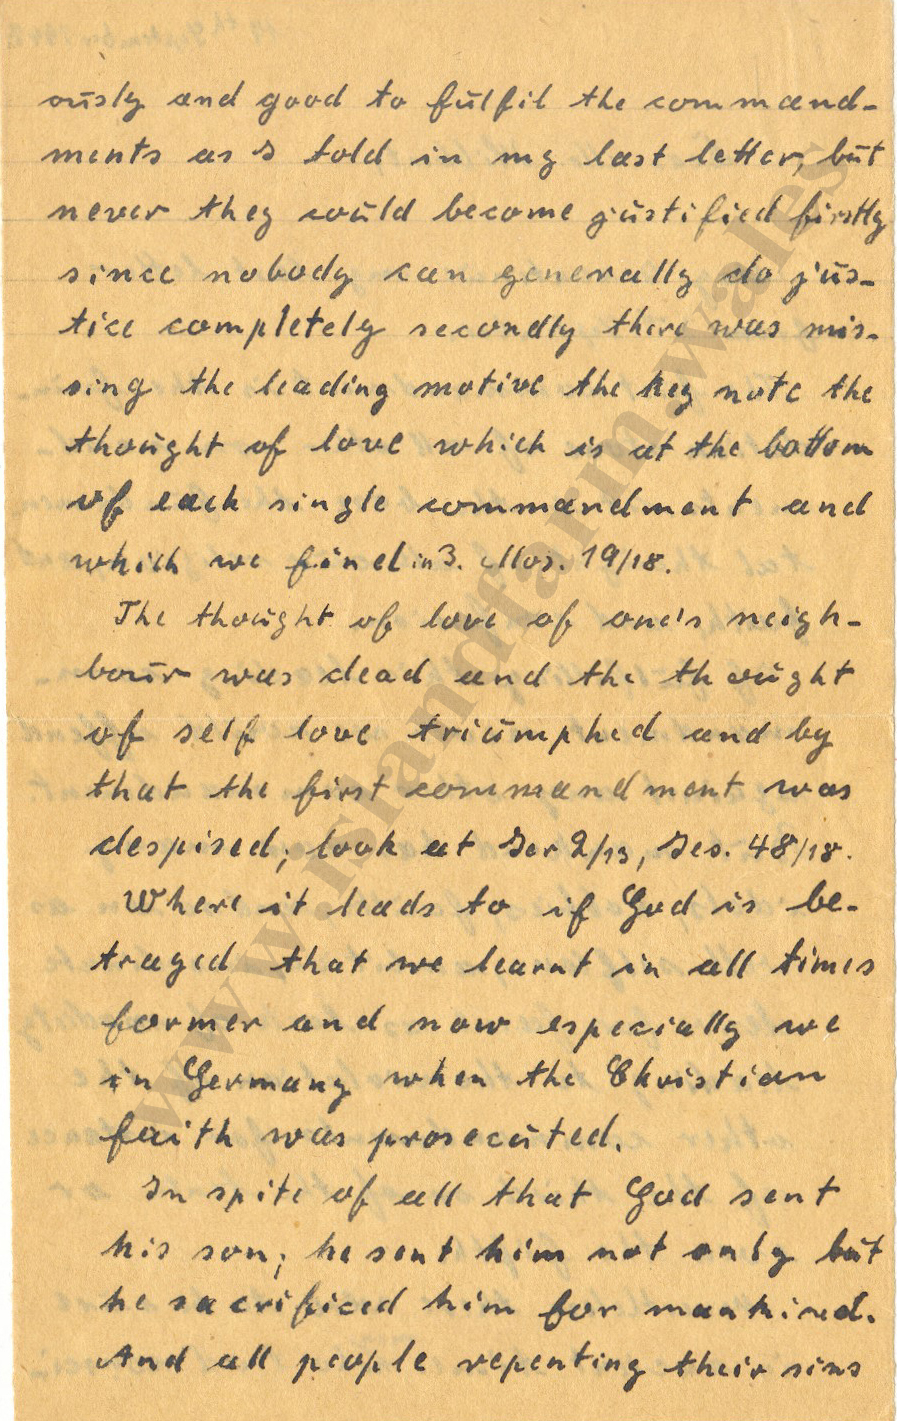 ously and good to fulfil the command-
ments as I told in my last letter, but
never they could become justified firstly
since nobody can generally do jus-
tice completely secondly there was mis-
sing the leading motive the key note the
thought of love which is at the bottom
of each single commandment and
which we find in 3. Mos. 19/18.
The thought of love of one's neigh-
bour was dead and the thought
of self love triumphed and by
that the first commandment was
despised; look at Jer 2/13, Jes. 48/18.
Where it leads to if God is be-
trayed that we learnt in all times
former and now especially we
in Germany when the Christian
faith was prosecuted.
In spite of all that God sent
his son; he sent him not only but
he sacrificed him for mankind.
And all people repenting their sins
www.islandfarm.wales